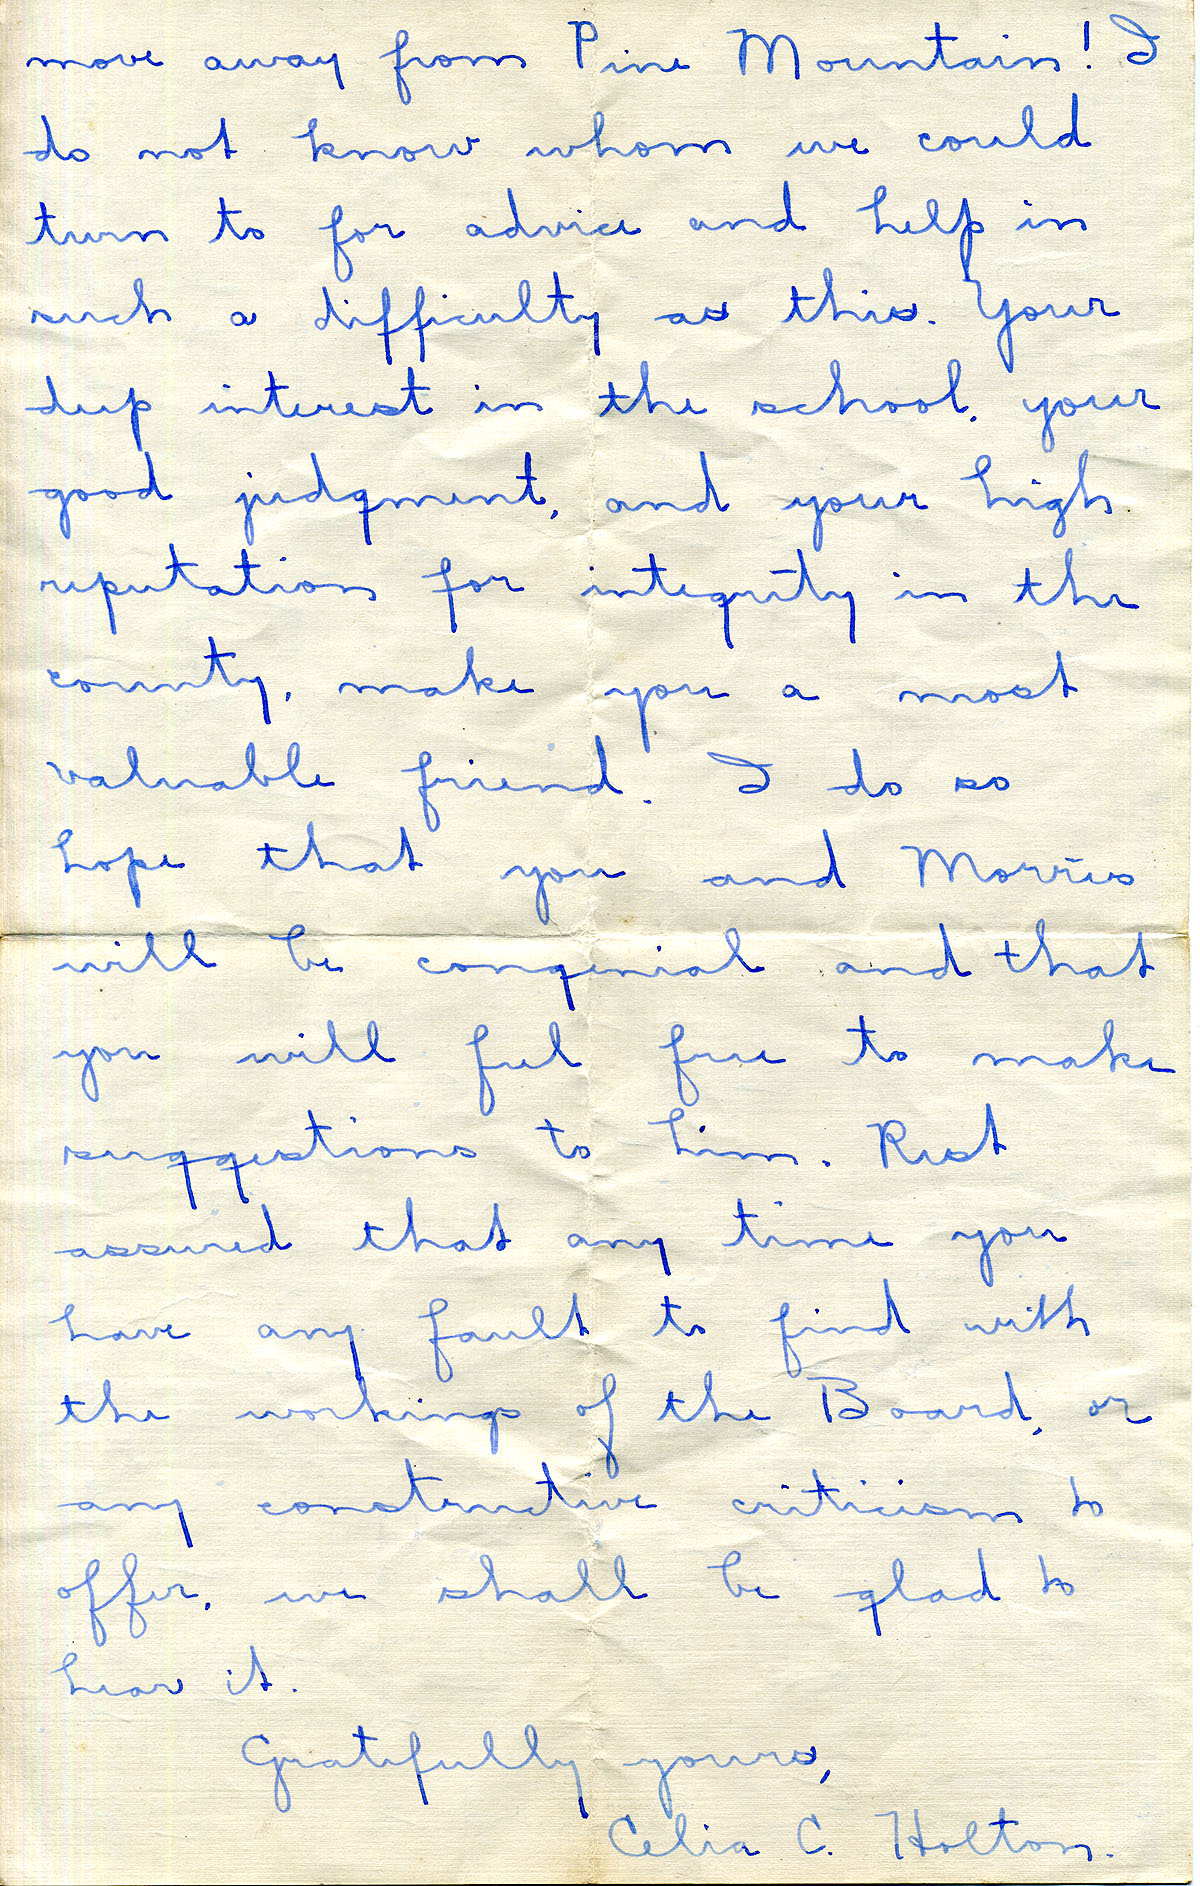 move away from Pine Mountain! I
do not know whom we could
turn to for advice and help in
such a difficulty as this. Your
deep interest in the school, your
good judgment, and your high
reputation for integrity in the
county, make you a most
valuable friend. I do so
hope that you and Morris
will be congenial and that
you will feel free to make
suggestions to him. Rest
assured that any time you
have any fault to find with
the workings of the Board, or
any constructive criticism to
offer, we shall be glad to
hear it.
Gratefully yours,
Celia C. Holton.